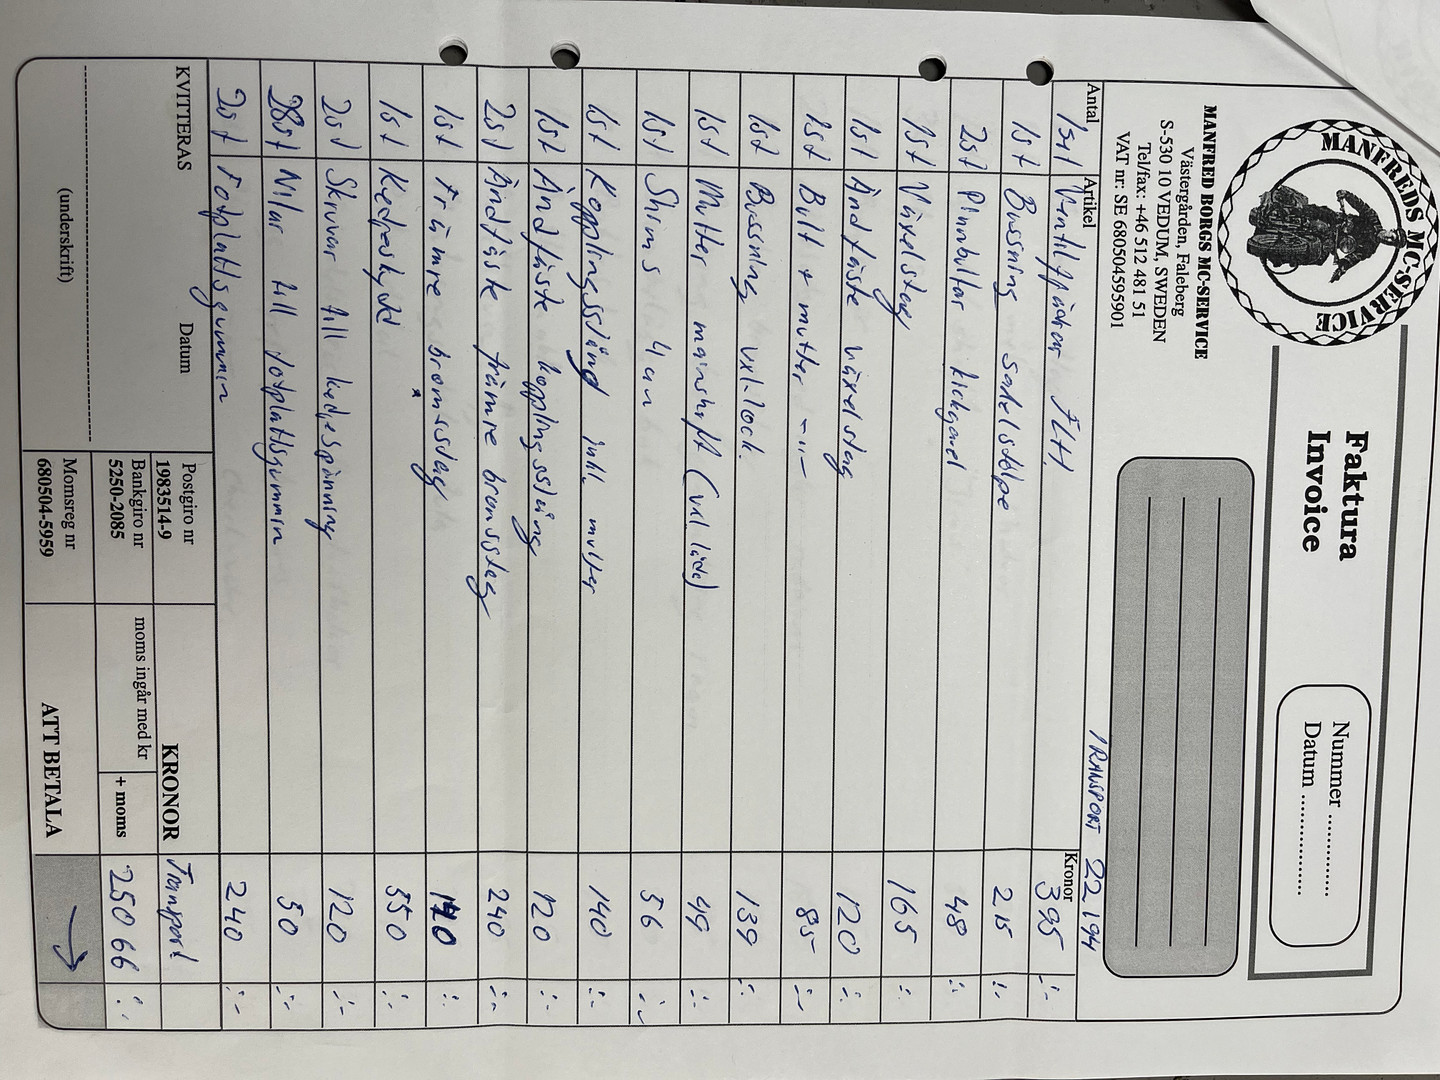 MANFREDS MC-SERVICE
Faktura
Invoice
Nummer ...............
Datum ...............
MANFRED BORGS MC-SERVICE
Västergården, Faleberg
S-530 10 VEDUM, SWEDEN
Tel/fax: +46 512 481 51
VAT nr: SE 680504595901
TRANSPORT 22194
Antal Artikel Kronor
1st Ventilfjädrar FLH. 395 :-
1st Bussning sadelstolpe 215 :-
2st Pinnbultar kickgavel 48 :-
1st Växelstag 165 :-
1st Ändfäste växelstag 120 :-
1st Bult + mutter -"- 85 :-
1st Bussning vxl.lock 139 :-
1st Mutter mainshaft (vxl.låda) 49 :-
1st Shims 56 :-
1st Kopplingsstång inkl. mutter 140 :-
1st Ändfäste kopplingsstång 120 :-
2st Ändfäste främre bromsstag 240 :-
1st Främre bromsstag 140 :-
1st Kedjeskydd 550 :-
2st Skruvar till kedjespänning 120 :-
28st Nitar till fotplattsgummin 50 :-
2st Fotplattsgummin 240 :-
KVITTERAS Datum
(underskrift)
Postgiro nr
1983514-9
Bankgiro nr
5250-2085
Momsreg nr
680504-5959
KRONOR Transport
moms ingår med kr + moms 25066 :-
ATT BETALA →